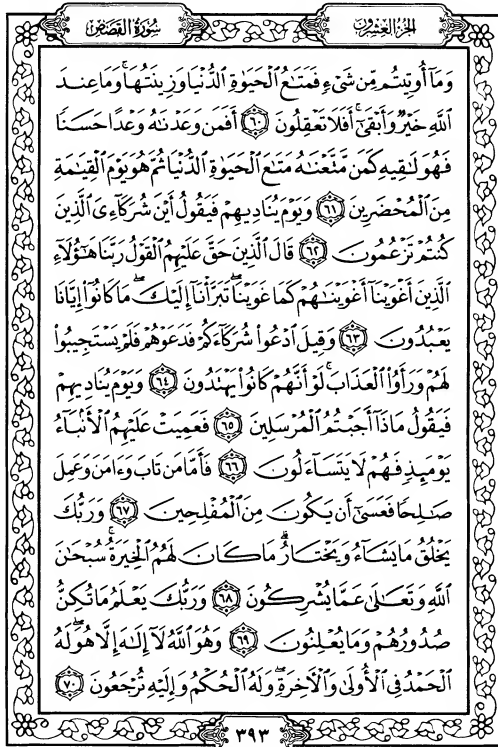 سُورَةُ القَصَصِ
الجزء العشرون
وَمَآ أُوتِيتُم مِّن شَىْءٍ فَمَتَٰعُ ٱلْحَيَوٰةِ ٱلدُّنْيَا وَزِينَتُهَا ۚ وَمَا عِندَ
ٱللَّهِ خَيْرٌ وَأَبْقَىٰٓ ۚ أَفَلَا تَعْقِلُونَ ٦٠ أَفَمَن وَعَدْنَٰهُ وَعْدًا حَسَنًا
فَهُوَ لَٰقِيهِ كَمَن مَّتَّعْنَٰهُ مَتَٰعَ ٱلْحَيَوٰةِ ٱلدُّنْيَا ثُمَّ هُوَ يَوْمَ ٱلْقِيَٰمَةِ
مِنَ ٱلْمُحْضَرِينَ ٦١ وَيَوْمَ يُنَادِيهِمْ فَيَقُولُ أَيْنَ شُرَكَآءِىَ ٱلَّذِينَ
كُنتُمْ تَزْعُمُونَ ٦٢ قَالَ ٱلَّذِينَ حَقَّ عَلَيْهِمُ ٱلْقَوْلُ رَبَّنَا هَٰٓؤُلَآءِ
ٱلَّذِينَ أَغْوَيْنَآ أَغْوَيْنَٰهُمْ كَمَا غَوَيْنَا ۖ تَبَرَّأْنَآ إِلَيْكَ ۖ مَا كَانُوٓا۟ إِيَّانَا
يَعْبُدُونَ ٦٣ وَقِيلَ ٱدْعُوا۟ شُرَكَآءَكُمْ فَدَعَوْهُمْ فَلَمْ يَسْتَجِيبُوا۟
لَهُمْ وَرَأَوُا۟ ٱلْعَذَابَ ۚ لَوْ أَنَّهُمْ كَانُوا۟ يَهْتَدُونَ ٦٤ وَيَوْمَ يُنَادِيهِمْ
فَيَقُولُ مَاذَآ أَجَبْتُمُ ٱلْمُرْسَلِينَ ٦٥ فَعَمِيَتْ عَلَيْهِمُ ٱلْأَنۢبَآءُ
يَوْمَئِذٍ فَهُمْ لَا يَتَسَآءَلُونَ ٦٦ فَأَمَّا مَن تَابَ وَءَامَنَ وَعَمِلَ
صَٰلِحًا فَعَسَىٰٓ أَن يَكُونَ مِنَ ٱلْمُفْلِحِينَ ٦٧ وَرَبُّكَ
يَخْلُقُ مَا يَشَآءُ وَيَخْتَارُ ۗ مَا كَانَ لَهُمُ ٱلْخِيَرَةُ ۚ سُبْحَٰنَ
ٱللَّهِ وَتَعَٰلَىٰ عَمَّا يُشْرِكُونَ ٦٨ وَرَبُّكَ يَعْلَمُ مَا تُكِنُّ
صُدُورُهُمْ وَمَا يُعْلِنُونَ ٦٩ وَهُوَ ٱللَّهُ لَآ إِلَٰهَ إِلَّا هُوَ ۖ لَهُ
ٱلْحَمْدُ فِى ٱلْأُولَىٰ وَٱلْءَاخِرَةِ ۖ وَلَهُ ٱلْحُكْمُ وَإِلَيْهِ تُرْجَعُونَ ٧٠
٣٩٣